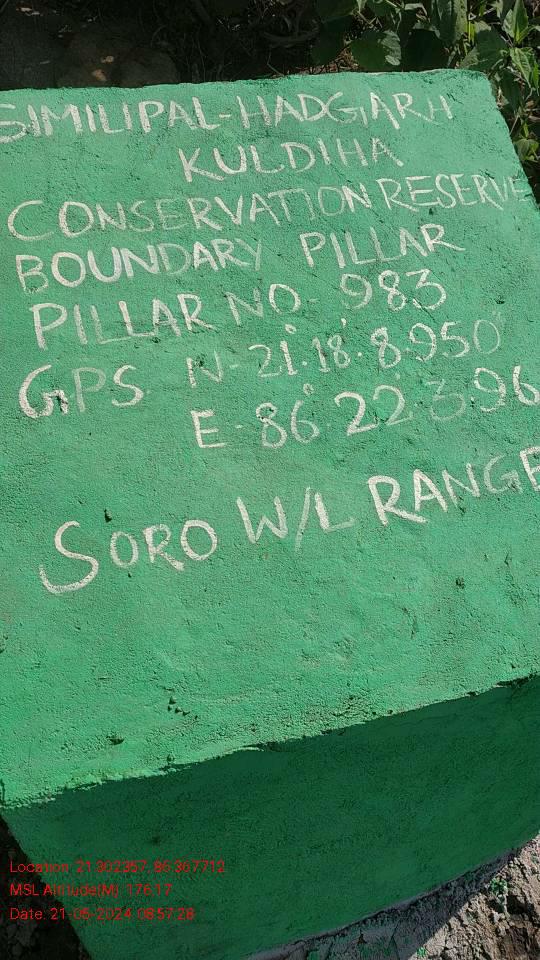 SIMILIPAL-HADGARH
KULDIHA
CONSERVATION RESERVE
BOUNDARY PILLAR
PILLAR NO- 983
GPS N-21°.18'.8.950
E-86°.22'.3.96
SORO W/L RANGE
Location: 21.302357, 86.367712
MSL Altitude(M): 176.17
Date: 21-05-2024 08:57:28